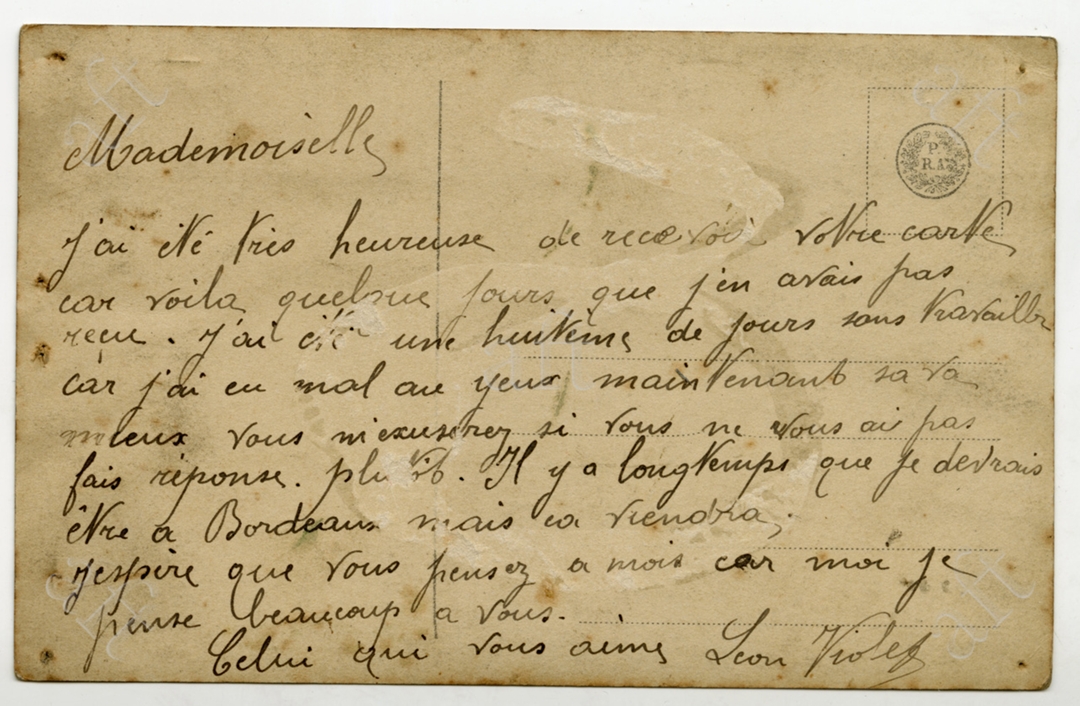 P.
R.A
Mademoiselle
J'ai été très heureuse de recevoir votre carte
car voila quelque jours que j'en avais pas
reçu. J'ai été une huiteme de jours sans travaille
car j'ai eu mal au yeux maintenant sa va
mieux vous m'exuserez si vous ne vous ai pas
fais réponse. plu vit. Il y a longtemps que je devrais
être a Bordeaux mais ca viendra,
J'espère que vous pensez a mois car moi je
pense beaucoup a vous.
Celui qui vous aime Leon Violet
aft
aft
aft
aft
aft